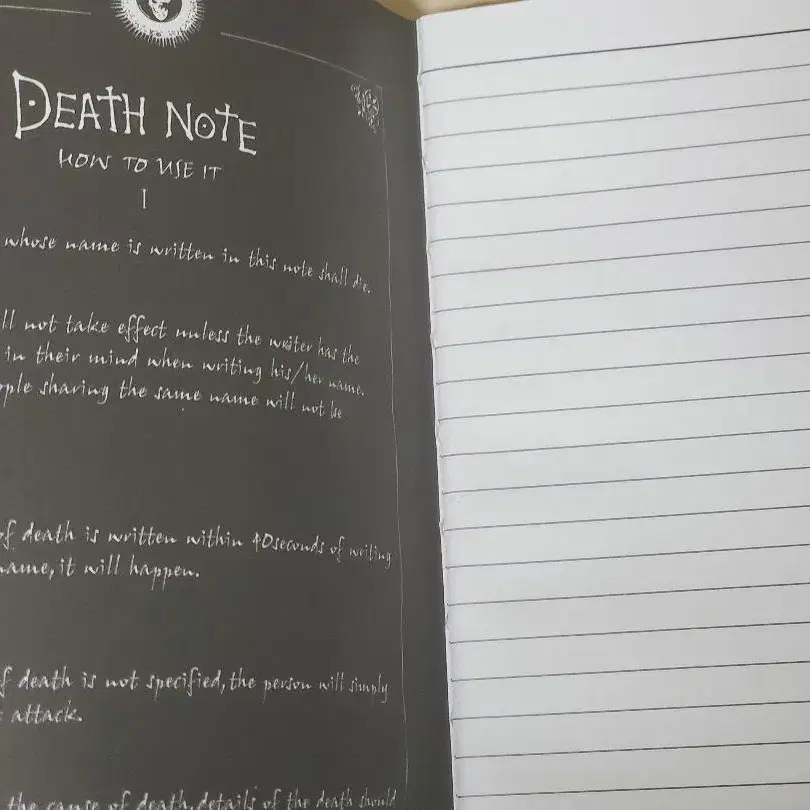 DEATH NOTE
HOW TO USE IT
I
whose name is written in this note shall die.
ll not take effect unless the writer has the
in their mind when writing his/her name.
ple sharing the same name will not be
of death is written within 40seconds of writing
name, it will happen.
f death is not specified, the person will simply
attack.
the cause of death, details of the death should